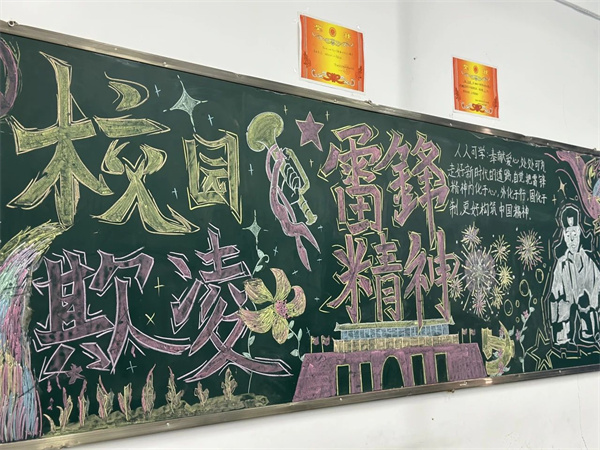 校园
欺凌
雷锋
精神
人人可学,奉献爱心处处可为
走好新时代的道路,自觉把雷锋
精神内化于心,外化于行,固化于
制,更好构筑中国精神